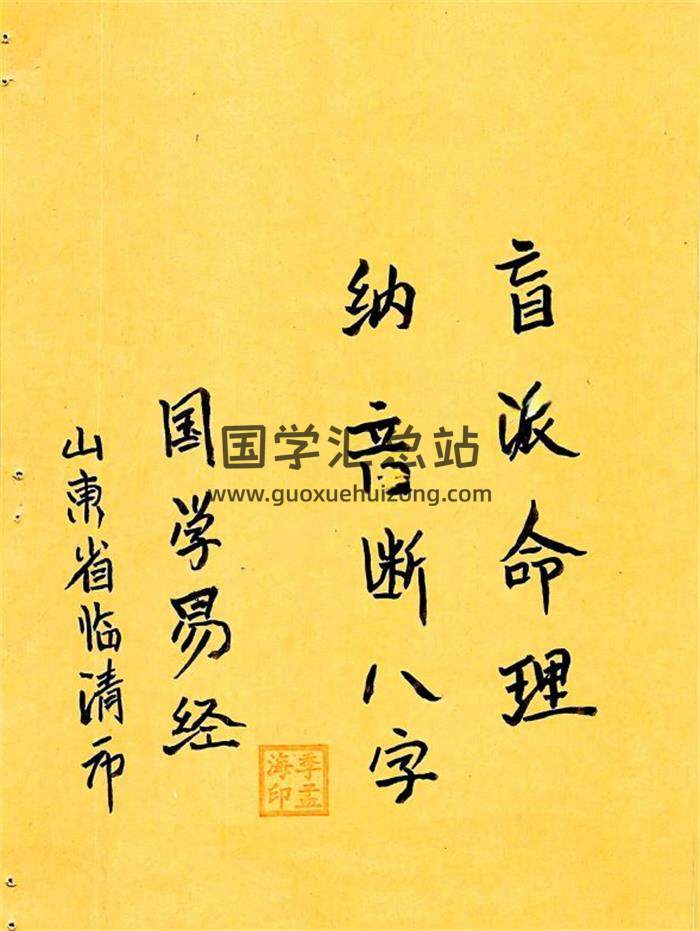 盲派命理
纳音断八字
国学易经
山東省临清市
季孟
海印
国学汇总站
www.guoxuehuizong.com